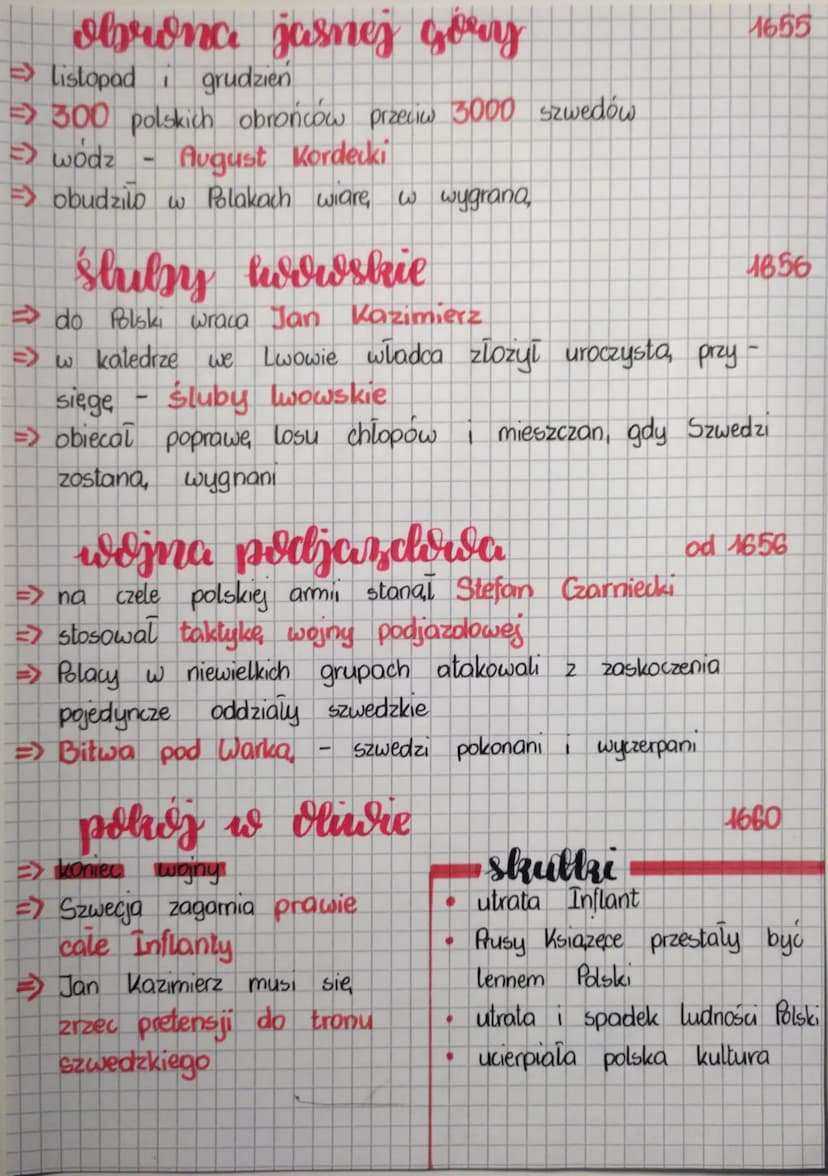 obrona jasnej góry 1655
=> listopad i grudzień
=> 300 polskich obrońców przeciw 3000 szwedów
=> wódz - August Kordecki
=> obudziło w Polakach wiarę w wygraną
śluby lwowskie 1656
=> do Polski wraca Jan Kazimierz
=> w katedrze we Lwowie władca złożył uroczystą przy-
sięgę - śluby lwowskie
=> obiecał poprawę losu chłopów i mieszczan, gdy Szwedzi
zostaną wygnani
wojna podjazdowa od 1656
=> na czele polskiej armii stanął Stefan Czarniecki
=> stosował taktykę wojny podjazdowej
=> Polacy w niewielkich grupach atakowali z zaskoczenia
pojedyncze oddziały szwedzkie
=> Bitwa pod Warką - szwedzi pokonani i wyczerpani
pokój w Oliwie 1660
=> koniec wojny
=> Szwecja zagarnia prawie
całe Inflanty
=> Jan Kazimierz musi się
zrzec pretensji do tronu
szwedzkiego
skutki
• utrata Inflant
• Prusy Książęce przestały być
lennem Polski
• utrata i spadek ludności Polski
• ucierpiała polska kultura